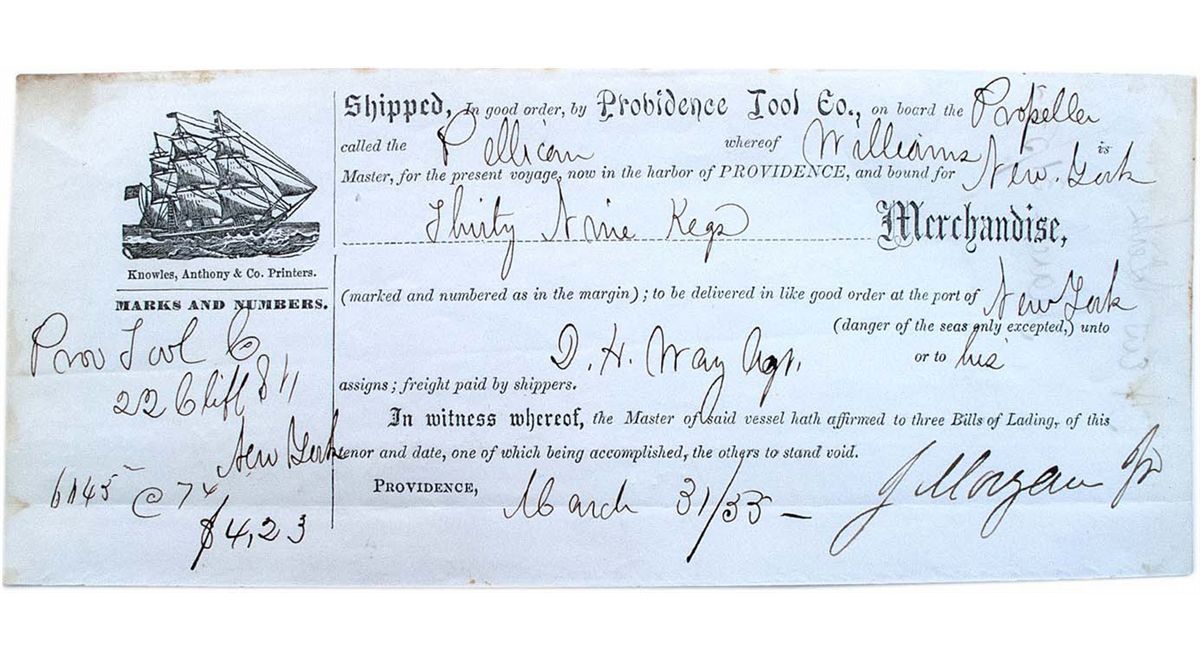 Shipped, In good order, by Providence Tool Co., on board the Propeller
called the Pellican whereof Williams is
Master, for the present voyage, now in the harbor of PROVIDENCE, and bound for New York
Thirty Nine Kegs Merchandise,
(marked and numbered as in the margin); to be delivered in like good order at the port of New York
(danger of the seas only excepted,) unto
D. H. Way Agt. or to his
assigns; freight paid by shippers.
In witness whereof, the Master of said vessel hath affirmed to three Bills of Lading, of this
tenor and date, one of which being accomplished, the others to stand void.
PROVIDENCE, March 31/55
J Morgan
Knowles, Anthony & Co. Printers.
MARKS AND NUMBERS.
Prov Tool Co
22 Cliff St
New York
6145 @ 7
$4,23